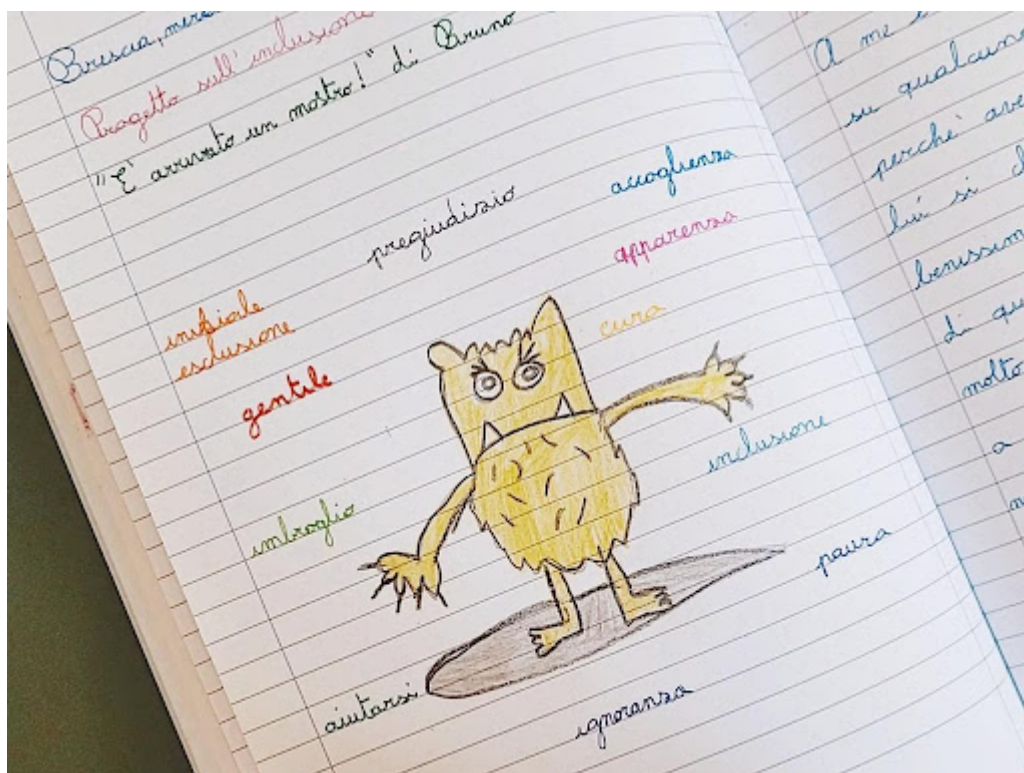 Brescia,
Progetto sull'inclusione
"È arrivato un mostro!" di Bruno
pregiudizio
accoglienza
apparenza
inifiale
esclusione
cura
gentile
inclusione
imbroglio
paura
aiutarsi
ignoranza
A me
su qualcuno
perché
lui si
di
molto
a